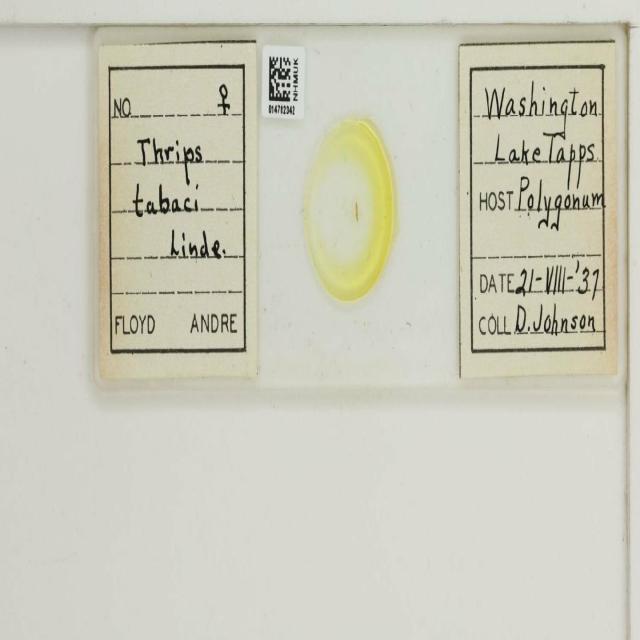 NO ♀
Thrips
tabaci
Linde.
FLOYD ANDRE
NHMUK
014782342
Washington
Lake Tapps
HOST Polygonum
DATE 21-VIII-'37
COLL D. Johnson